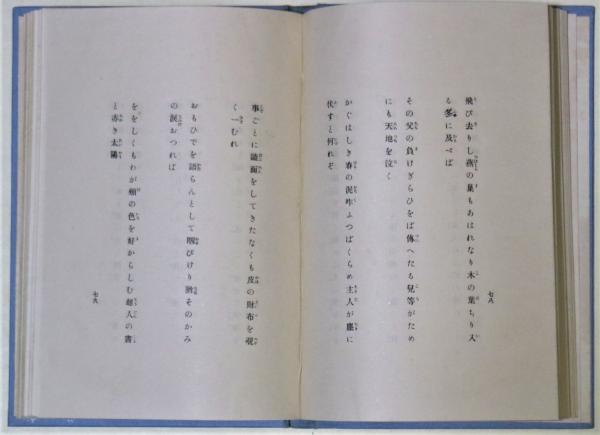 飛び去りし燕の巣もあはれなり木の葉ちり入
る冬に及べば
その父の負けぎらひをば傳へたる兒等がため
にも天地を泣く
かぐはしき春の泥咋ふつばくらめ主人が塵に
伏すと何れぞ
七八
事ごとに面をしてきたなくも皮の財布を覗
く一むれ
おもひでを語らんとして咽びけりそのかみ
の涙おつれば
ををしくもわが頬の色を好からしむ超人の書
と赤き太陽
七九